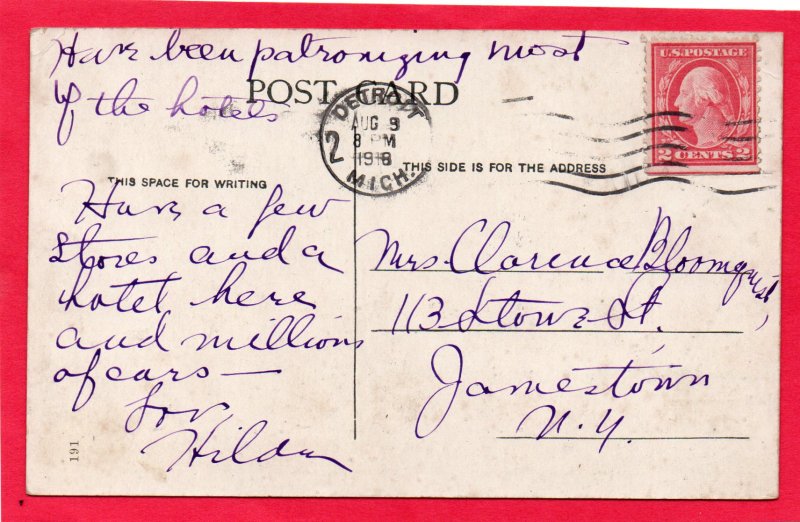 Have been patronizing most
of the hotels
POST CARD
DETROYT
AUG 9
8 PM
1918
MICH.
2
U.S. POSTAGE
2 CENTS 2
THIS SPACE FOR WRITING
THIS SIDE IS FOR THE ADDRESS
Have a few
stores and a
hotel here
and millions
of cars —
Lov
Hilda
Mrs. Clarence Bloomquist,
113 Stowe St.
Jamestown
N.Y.
191